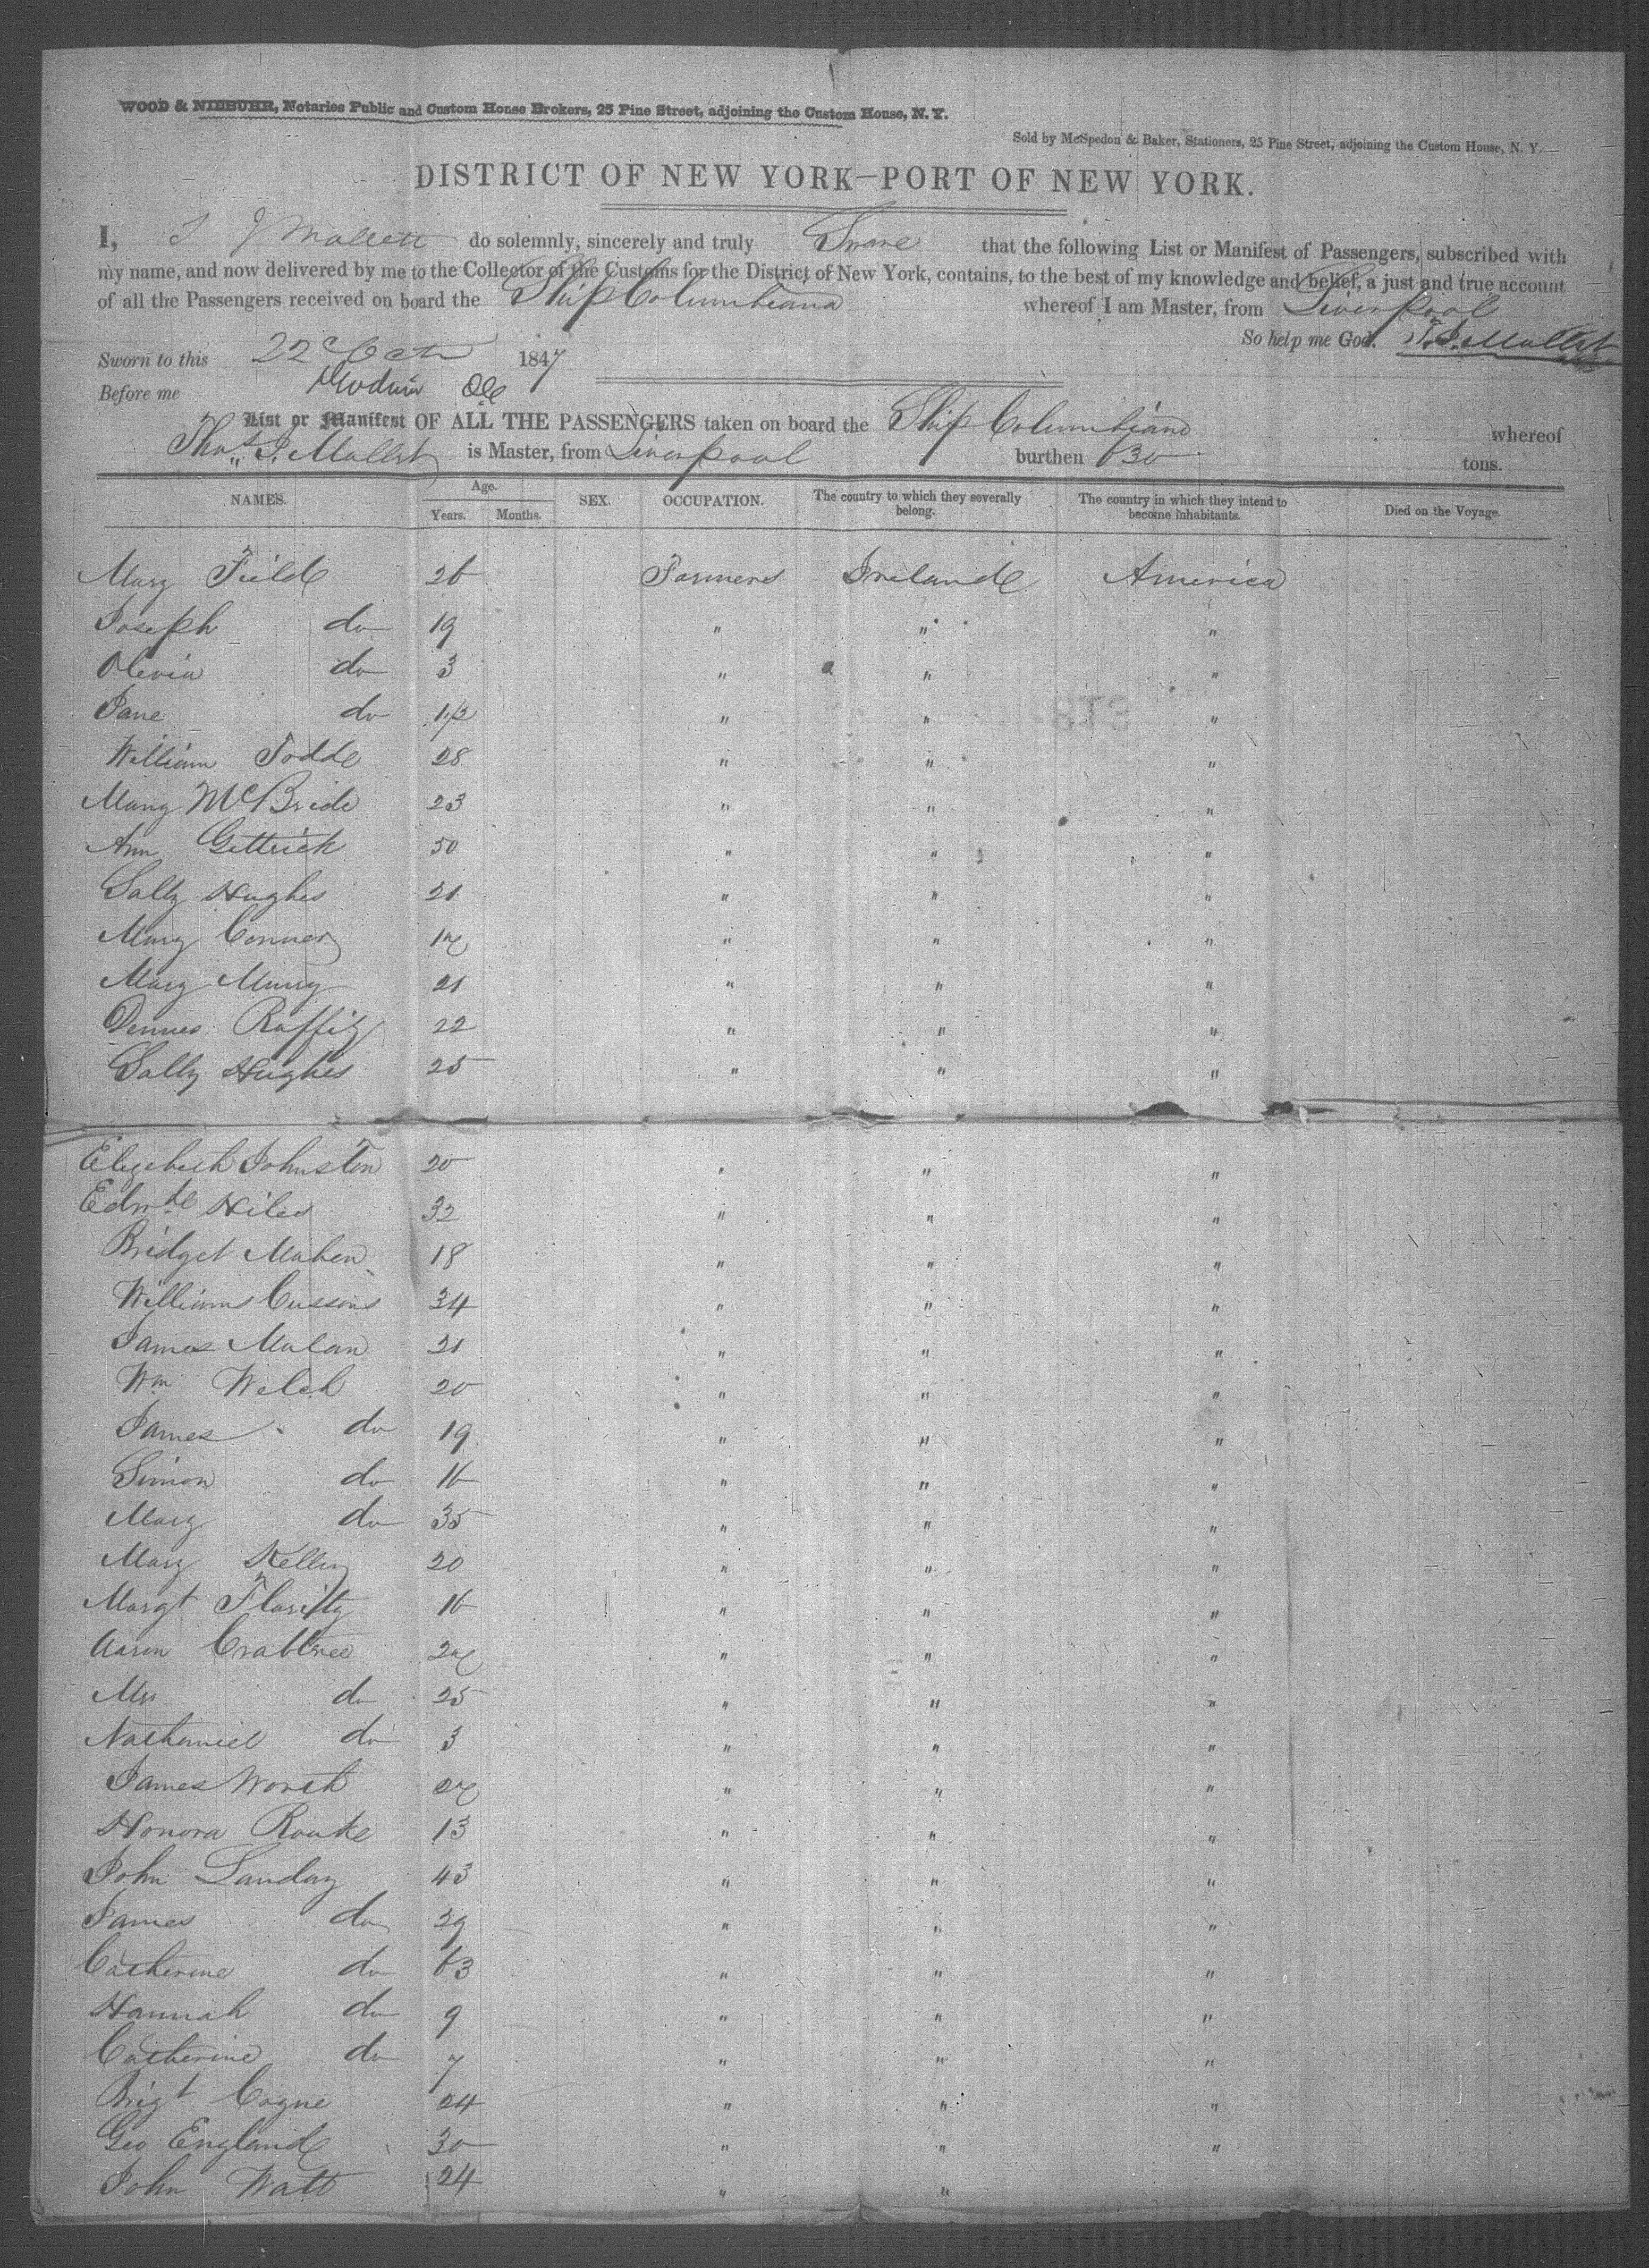 WOOD & NIEBUHR, Notaries Public and Custom House Brokers, 25 Pine Street, adjoining the Custom House, N. Y.
Sold by McSpedon & Baker, Stationers, 25 Pine Street, adjoining the Custom House, N. Y.
DISTRICT OF NEW YORK—PORT OF NEW YORK.
I, T J Mallett do solemnly, sincerely and truly Swore that the following List or Manifest of Passengers, subscribed with
my name, and now delivered by me to the Collector of the Customs for the District of New York, contains, to the best of my knowledge and belief, a just and true account
of all the Passengers received on board the Ship Columbiana whereof I am Master, from Liverpool
So help me God. T. J. Mallett
Sworn to this 22 Oct 1847
Before me
List or Manifest OF ALL THE PASSENGERS taken on board the Ship Columbiana whereof
Thos. J. Mallett is Master, from Liverpool burthen 630 tons.
NAMES. Age. Years. Months. SEX. OCCUPATION. The country to which they severally belong. The country in which they intend to become inhabitants. Died on the Voyage.
Mary Field 26 Farmers Ireland America
Joseph do 19 " " "
Olevia do 3 " " "
Jane do 1/2 " " "
William Todd 28 " " "
Mary McBride 23 " " "
Ann Gettrick 50 " " "
Sally Hughes 21 " " "
Mary Conner 17 " " "
Mary Murry 21 " " "
Dennes Raffity 22 " " "
Sally Hughes 25 " " "
Elizabeth Johnston 20 " " "
Edwd Hiles 32 " " "
Bridget Mahen 18 " " "
Williams Cussons 34 " " "
James Malan 21 " " "
Wm Welch 20 " " "
James do 19 " " "
Simon do 16 " " "
Mary do 35 " " "
Mary Kelley 20 " " "
Margt Flarity 16 " " "
Aaron Crabtree 27 " " "
Mrs do 25 " " "
Nathaniel do 3 " " "
James Worsh 27 " " "
Honora Rourke 13 " " "
John Landay 43 " " "
James do 39 " " "
Catherine do 63 " " "
Hannah do 9 " " "
Catherine do 7 " " "
Brigt Cogne 24 " " "
Geo England 30 " " "
John Watt 24 " "